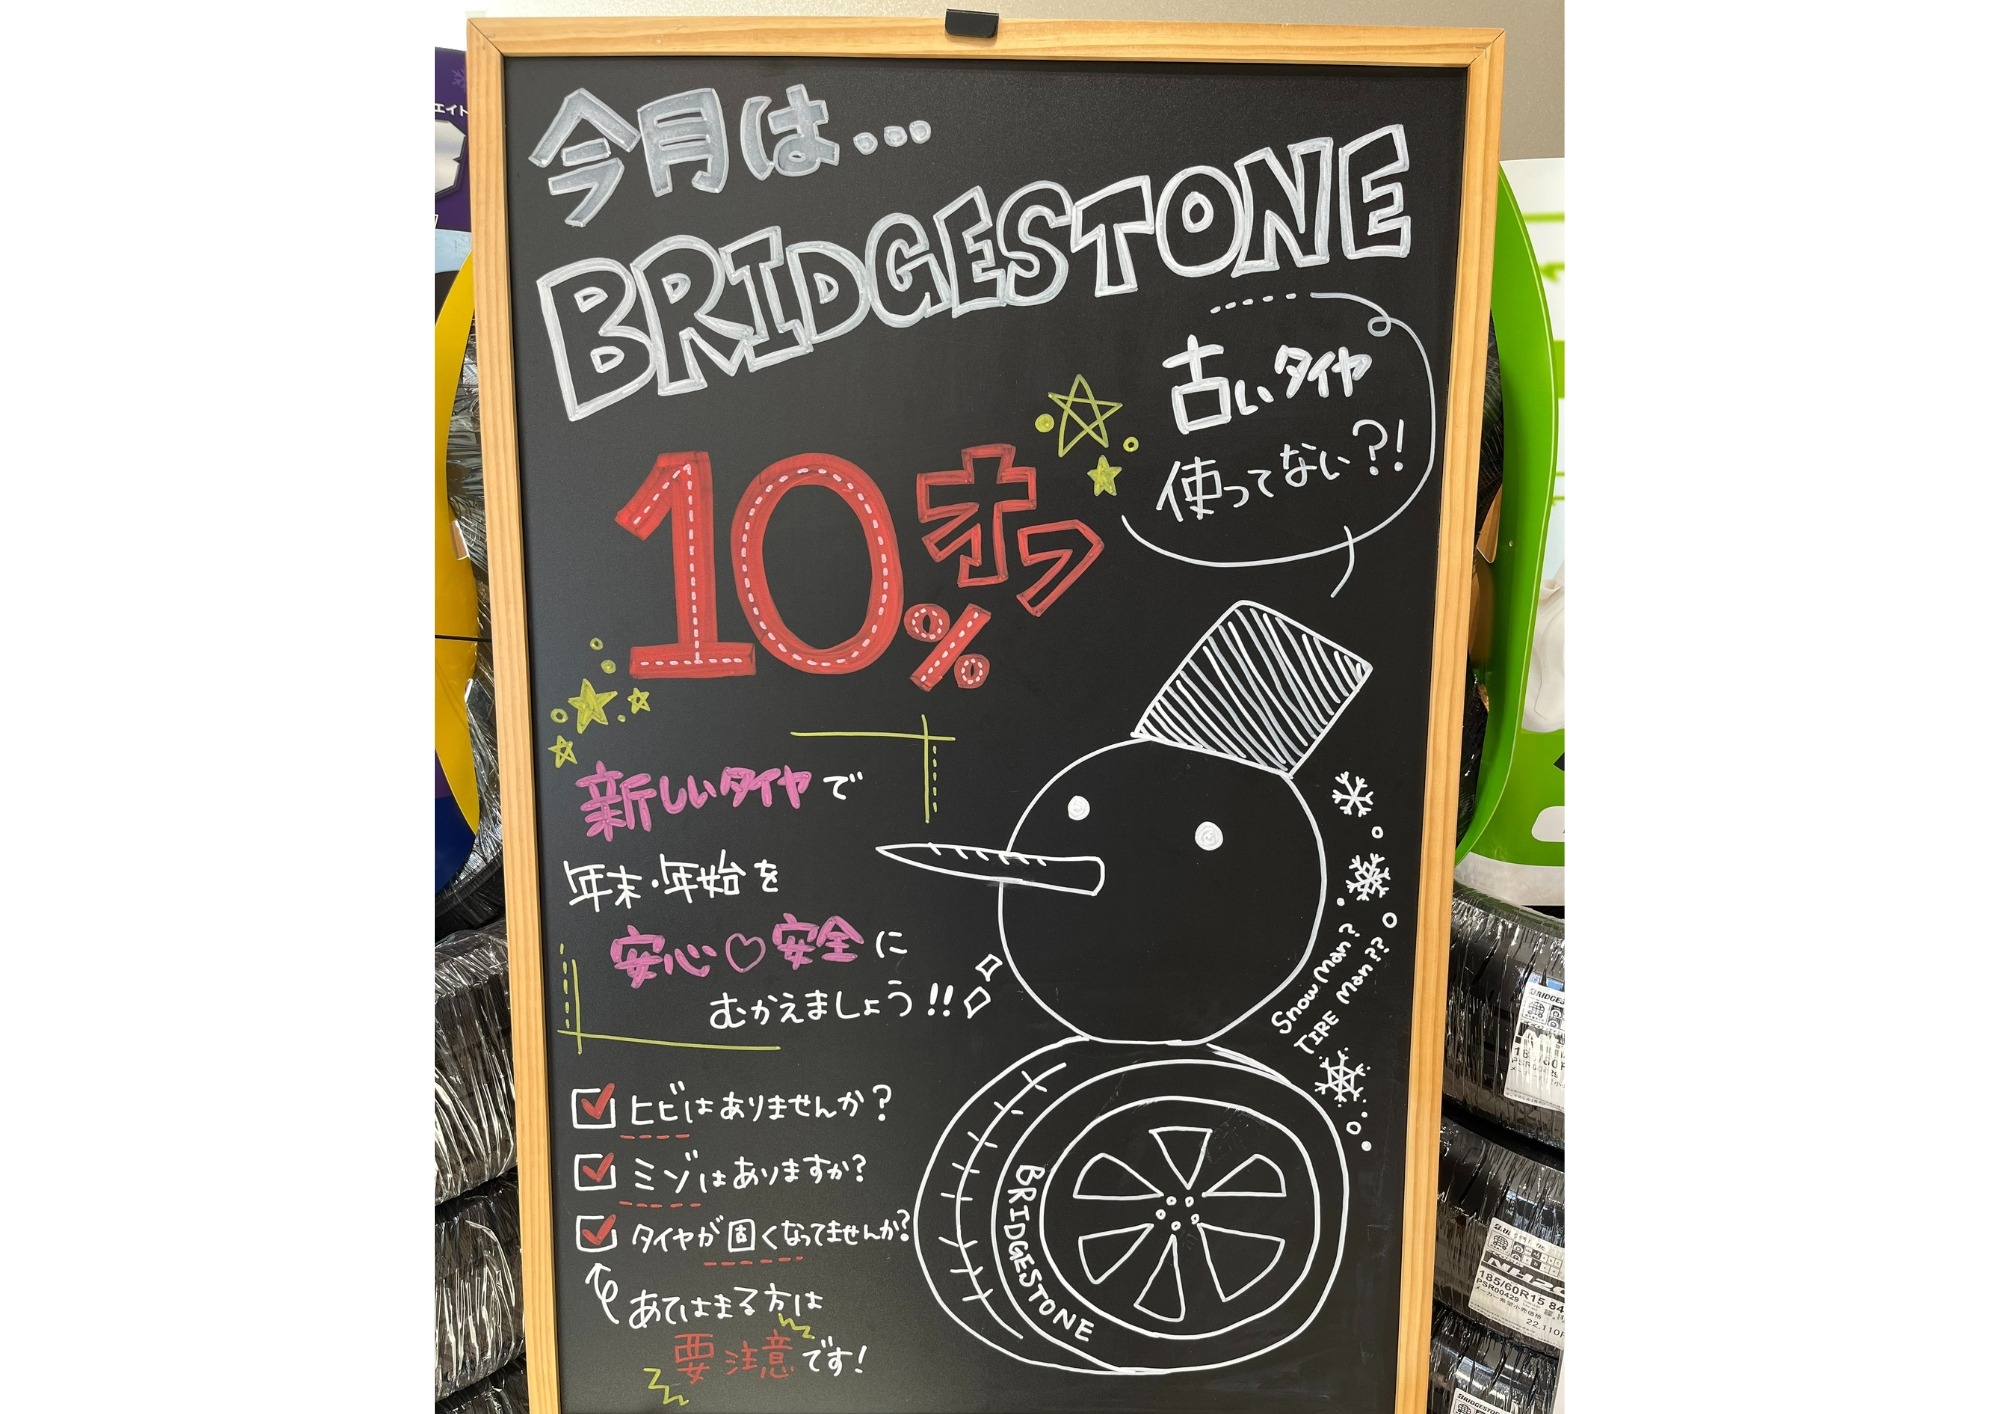 今月は...
BRIDGESTONE
古いタイヤ
使ってない?!
10%オフ
新しいタイヤで
年末・年始を
安心♡安全に
むかえましょう!!
Snow Man?
TIRE Man??
ヒビはありませんか?
ミゾはありますか?
タイヤが固くなってませんか?
あてはまる方は
要注意です!
BRIDGESTONE
エイト
185/60R15 84
PSR00429
22,110